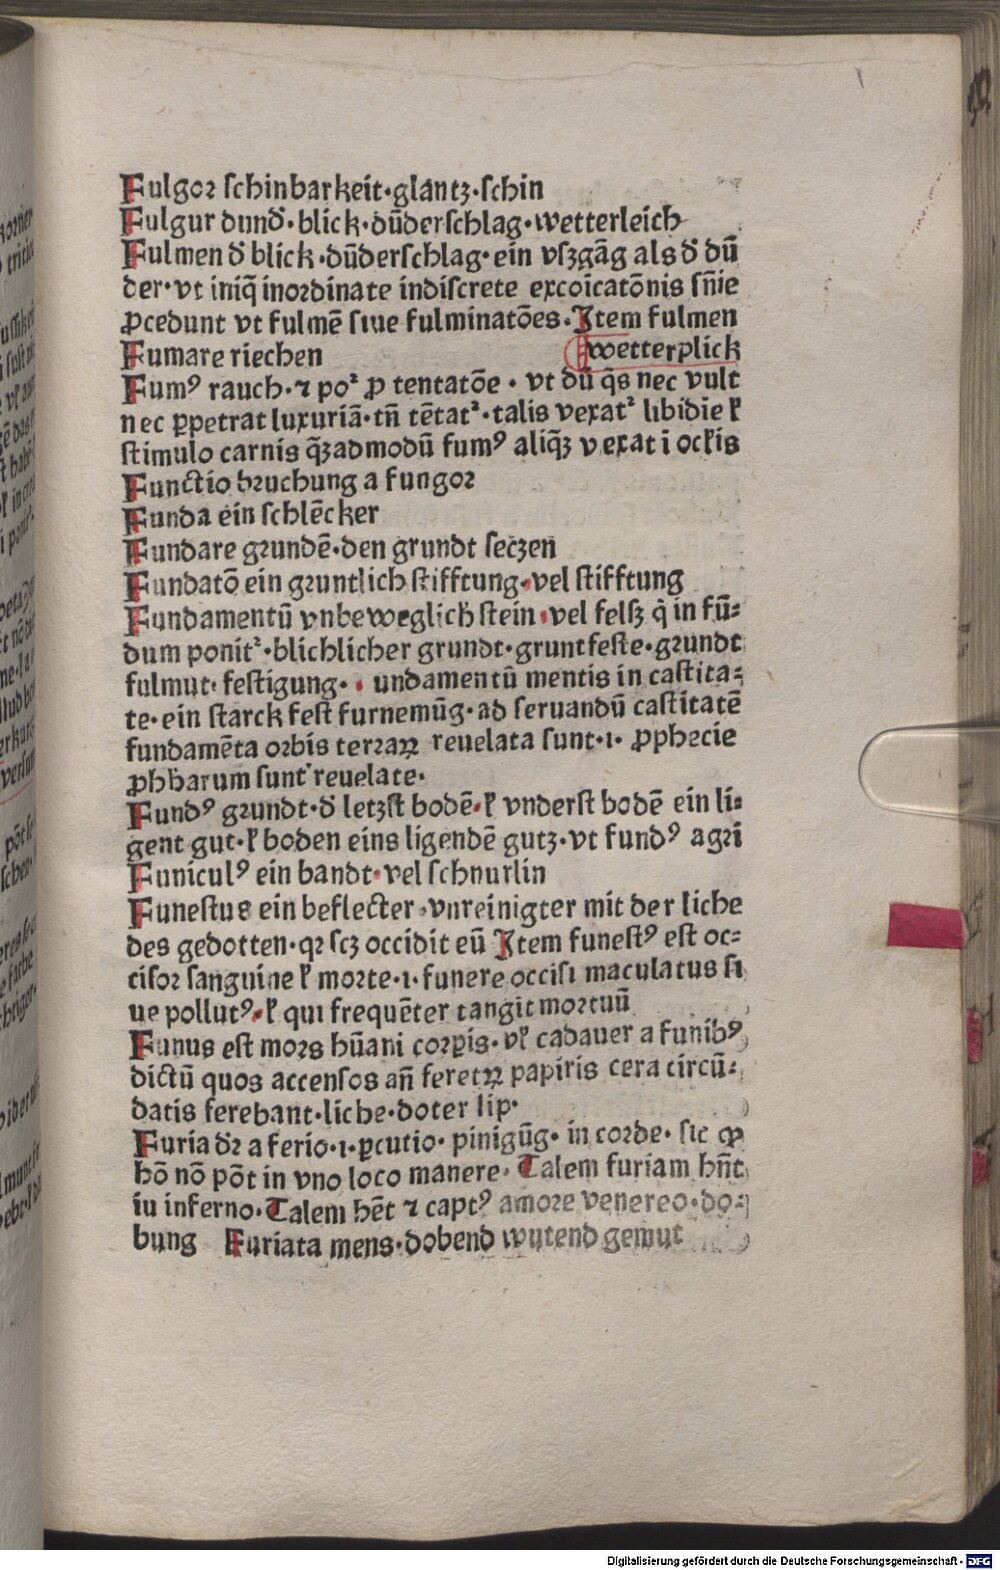 Fulgor schinbarkeit·glantz·schin
Fulgur dund̄·blick·dūderschlag·wetterleich
Fulmen d̄ blick·dūderschlag·ein vszgāg als d̄ dū
der·vt iniq̄ inordinate indiscrete excōicatōnis sn̄ie
ꝓcedunt vt fulmē siue fulminatōes·Item fulmen
Fumare riechen wetterplick
Fumꝰ rauch·⁊ poʳ ꝓ tentatōe·vt dū q̄s nec vult
nec ꝑpetrat luxuriā·tn̄ tētatʳ·talis vexatʳ libidīe ꝉ
stimulo carnis q̄ꝫadmodū fumꝰ aliq̄ꝫ vexat i oclꝉis
Functio bruchung a fungor
Funda ein schlēcker
Fundare grundē·den grundt seczen
Fundatō ein gruntlich stifftung·vel stifftung
Fundamentū vnbeweglich stein·vel felsz q̇ in fū⸗
dum ponitʳ·blichlicher grundt·gruntfeste·grundt
fulmut·festigung· undamentū mentis in castita⸗
te·ein starck fest furnemūg·ad seruandū castitatē
fundamēta orbis terraꝝ reuelata sunt·i·ꝓphecie
ꝓphħarum sunt reuelate·
Fundꝰ grundt·d̄ letzst bodē·ꝉ vnderst bodē ein li⸗
gent gut·ꝉ boden eins ligendē gutz·vt fundꝰ agri
Funiculꝰ ein bandt·vel schnurlin
Funestus ein beflecter·vnreinigter mit der liche
des gedotten·qꝛ scꝫ occidit eū Item funestꝰ est oc⸗
cisor sanguine ꝉ morte·i·funere occisi maculatus si
ue pollutꝰ·ꝉ qui frequēter tangit mortuū
Funus est mors hūani corꝑis·vꝉ cadauer a funibꝰ
dictū quos accensos an̄ feretꝝ papiris cera circū⸗
datis ferebant·liche·doter lip·
Furia dꝛ a ferio·i·ꝑcutio·pinigūg·in corde·sic ꝙ
hō nō pōt in vno loco manere·Talem furiam hn̄t
iu inferno·Talem hēt ⁊ captꝰ amore venereo·do⸗
bung Furiata mens·dobend wutend gemut
Digitalisierung gefördert durch die Deutsche Forschungsgemeinschaft · DFG